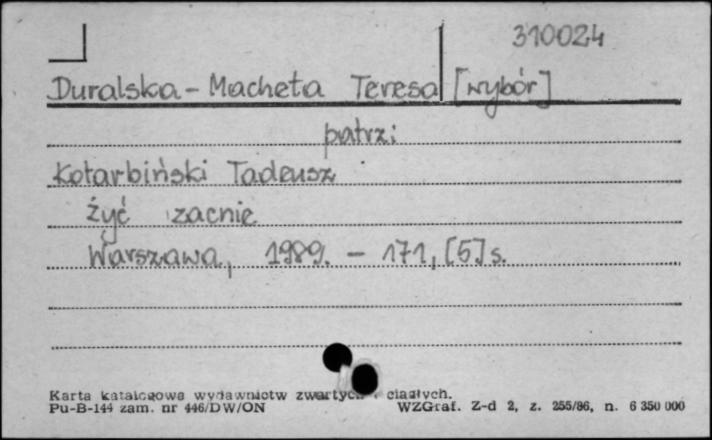 310024
Duralska-Macheta Teresa [wybór]
patrzi
Kotarbiński Tadeusz
żyć zacnie
Warszawa, 1989. - 171, [5] s.
Karta katalogowa wydawnictw zwartych i ciągłych.
Pu-B-144 zam. nr 446/DW/ON WZGraf. Z-d 2, z. 255/86, n. 6 350 000